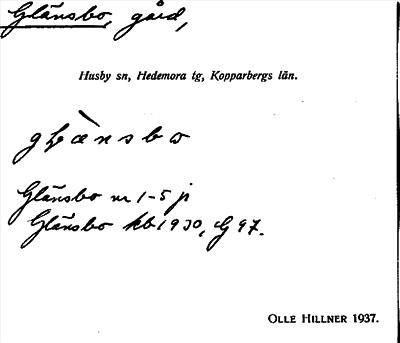 Glänsbo, gård,
Husby sn, Hedemora tg, Kopparbergs län.
Glänsbo nr 1-5 jr
Glänsbo kb 1930, G 97.
OLLE HILLNER 1937.